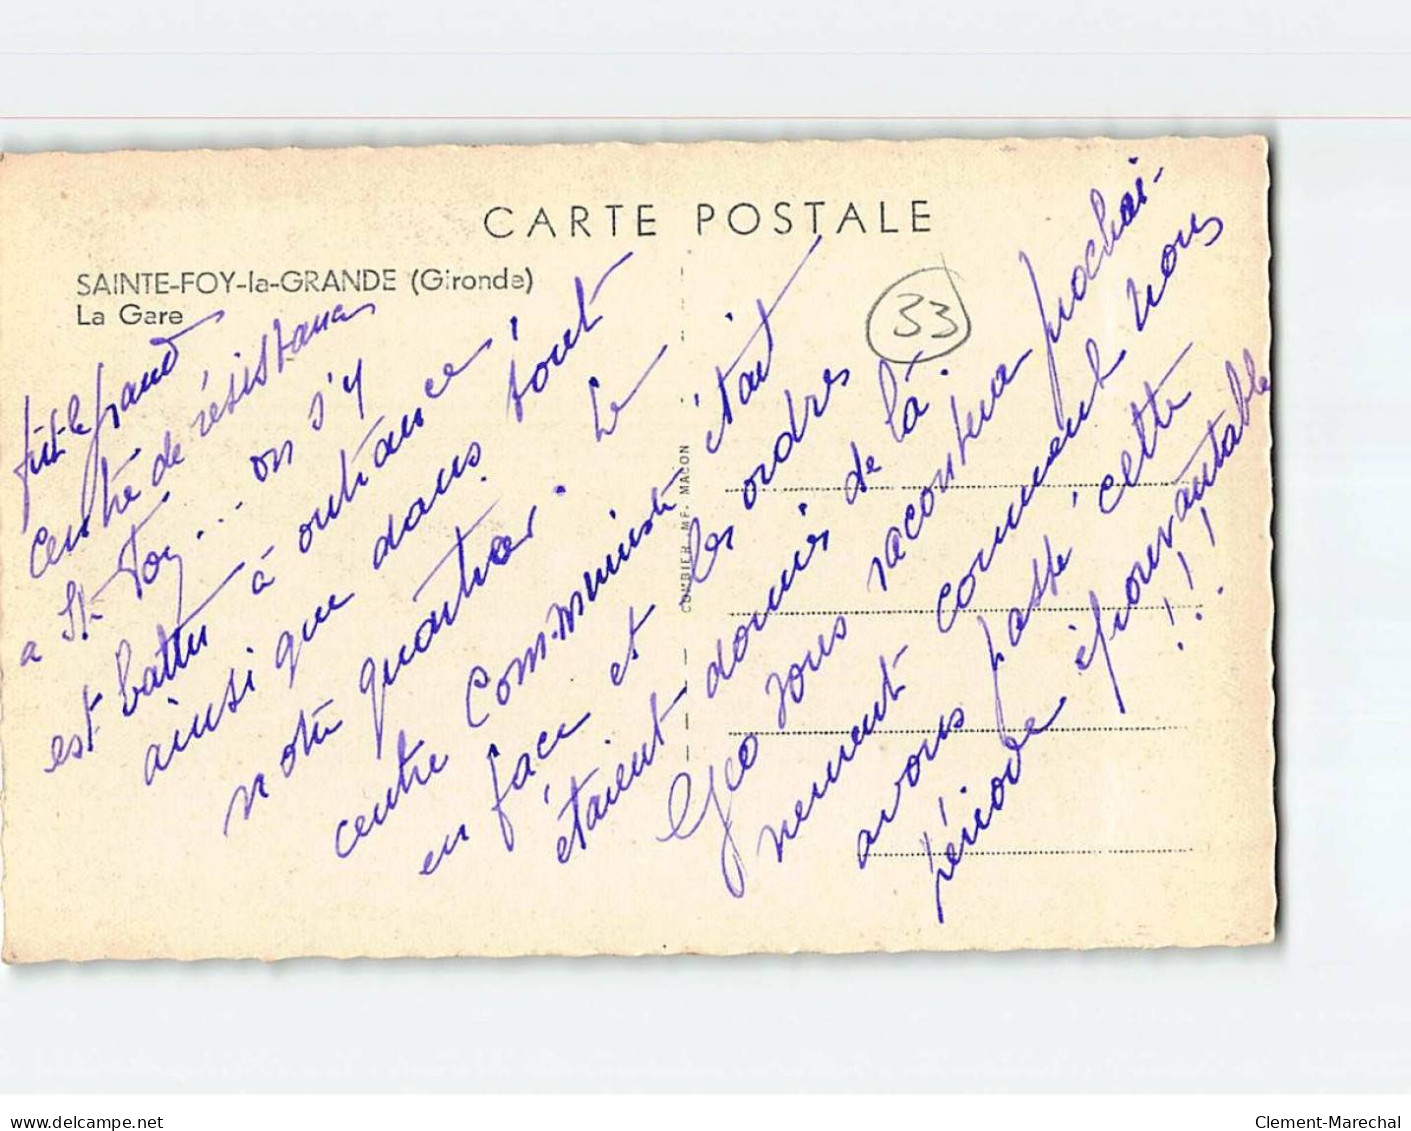 CARTE POSTALE
SAINTE-FOY-la-GRANDE (Gironde)
La Gare
33
COMBIER IMP. MACON
fut le grand
centre de résistance
a Ste Foy... on s'y
est battu à outrance !
ainsi que dans tout
notre quartier. Le
centre Communiste était
en face et les ordres
étaient donnés de là.
Geo vous racontera prochai-
nement comment nous
avons passé cette
période épouvantable
!!!
delcampe.net
Clement-Marechal